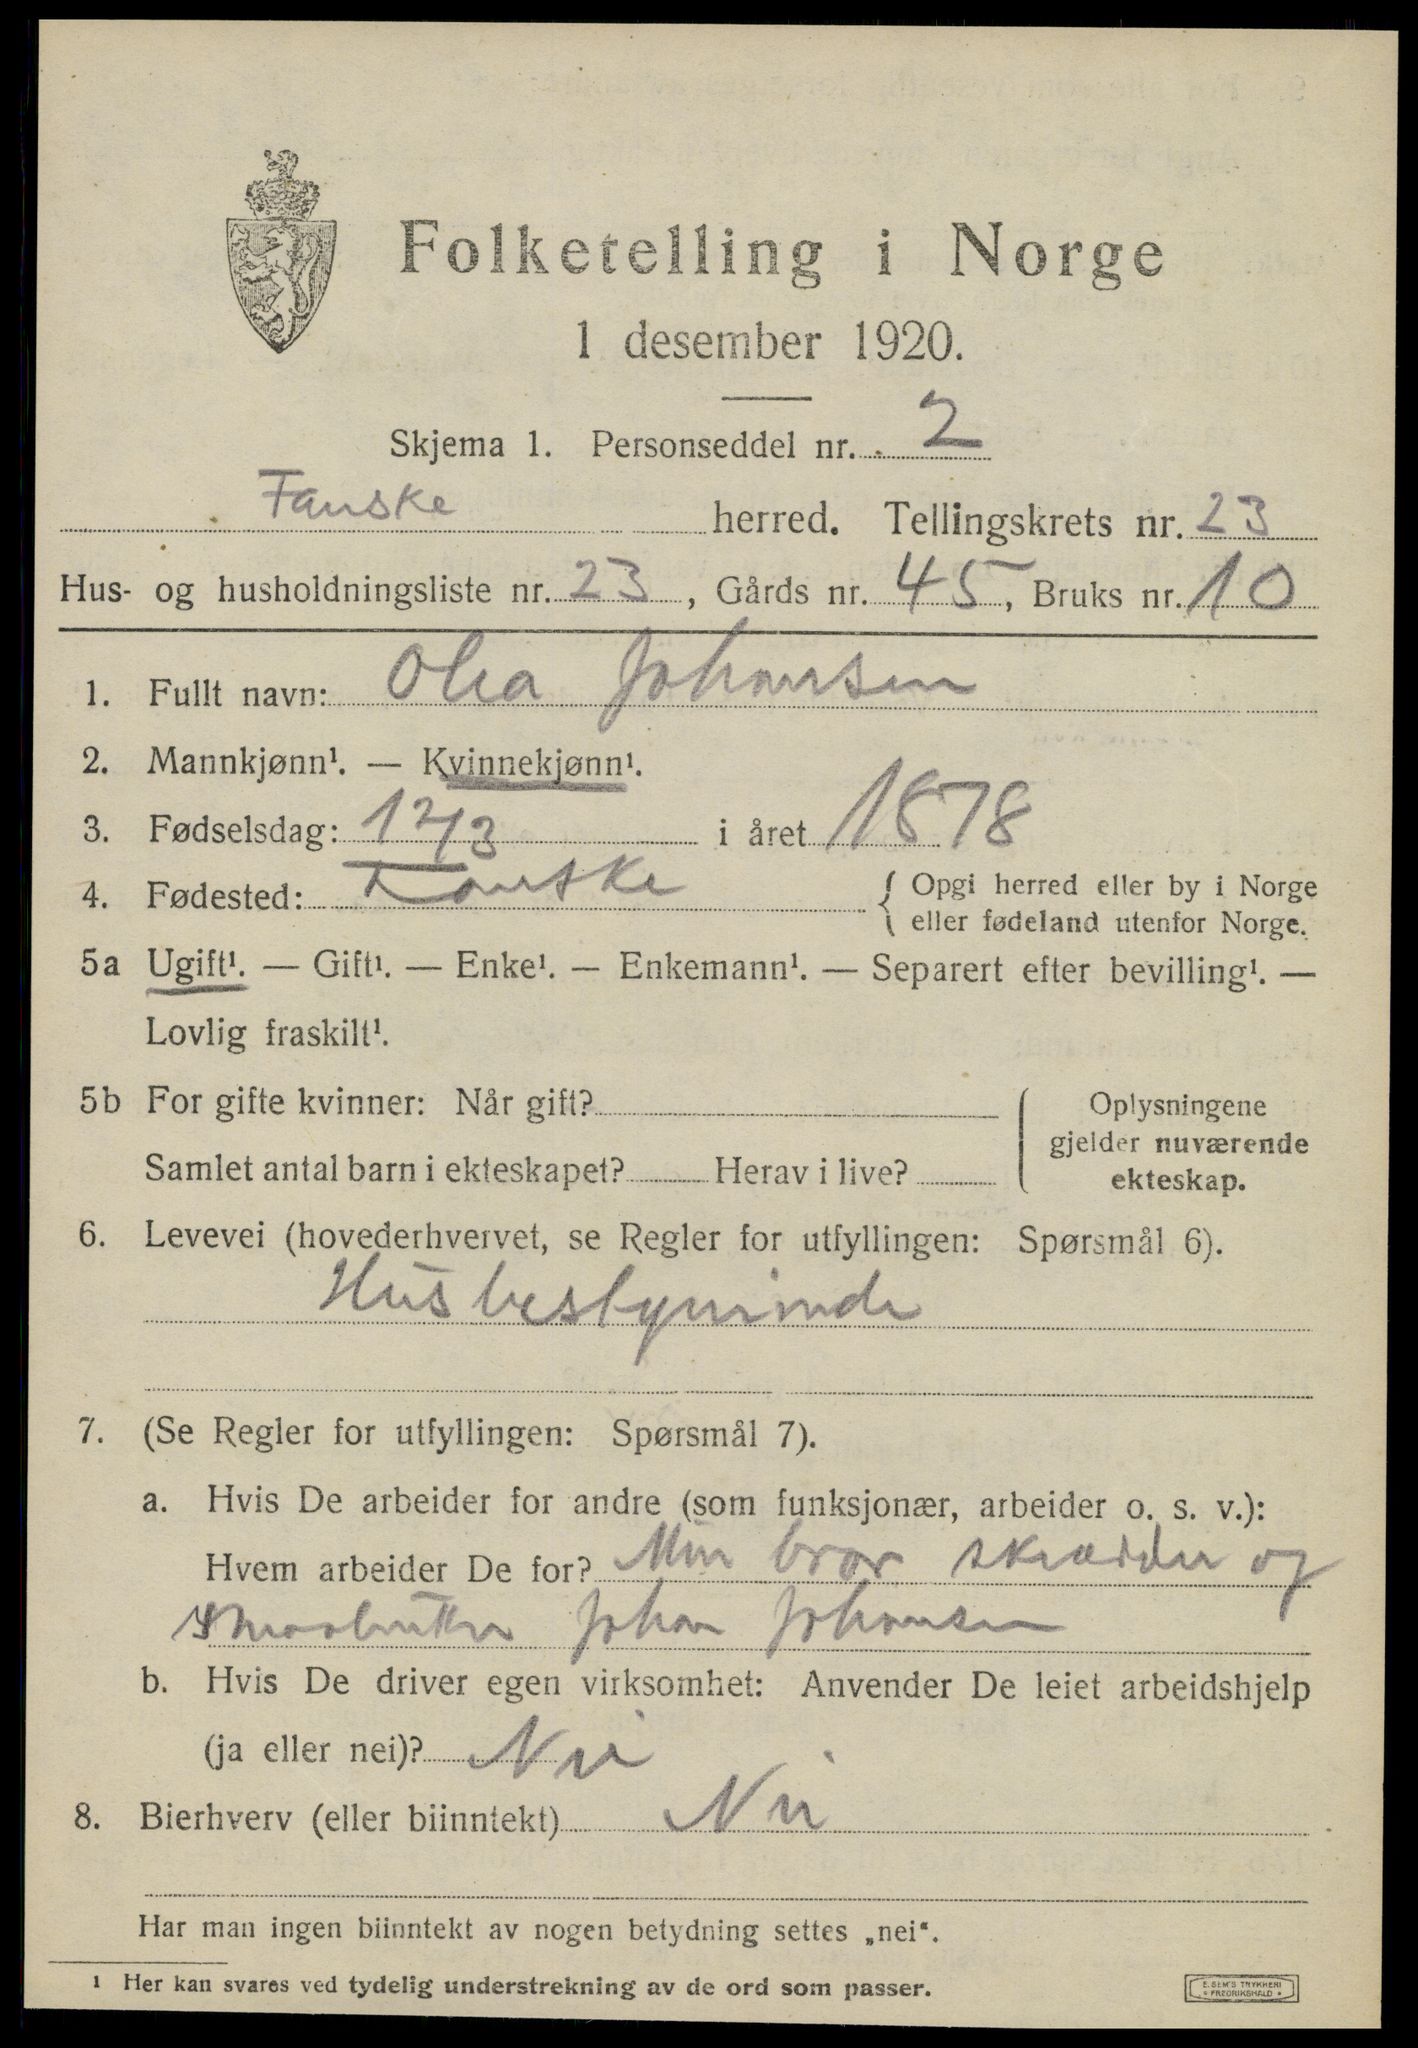 Folketelling i Norge
1 desember 1920.
Skjema 1. Personseddel nr. 2
Fauske herred. Tellingskrets nr. 23
Hus- og husholdningsliste nr. 23, Gårds nr. 45, Bruks nr. 10
1. Fullt navn: Olea Johansen
2. Mannkjønn¹. — Kvinnekjønn¹.
3. Fødselsdag: 12/3 i året 1878
4. Fødested: Fauske { Opgi herred eller by i Norge
eller fødeland utenfor Norge.
5a Ugift¹. — Gift¹. — Enke¹. — Enkemann¹. — Separert efter bevilling¹. —
Lovlig fraskilt¹.
5b For gifte kvinner: Når gift?
Samlet antal barn i ekteskapet? Herav i live?
Oplysningene
gjelder nuværende
ekteskap.
6. Levevei (hovederhvervet, se Regler for utfyllingen: Spørsmål 6).
Husbestyrinde
7. (Se Regler for utfyllingen: Spørsmål 7).
a. Hvis De arbeider for andre (som funksjonær, arbeider o. s. v.):
Hvem arbeider De for? Min bror skrædder og
Johan Johansen
b. Hvis De driver egen virksomhet: Anvender De leiet arbeidshjelp
(ja eller nei)? Nei
8. Bierhverv (eller biinntekt) Nei
Har man ingen biinntekt av nogen betydning settes „nei“.
1 Her kan svares ved tydelig understrekning av de ord som passer.
E. SEM'S TRYKKERI
FREDRIKSHALD